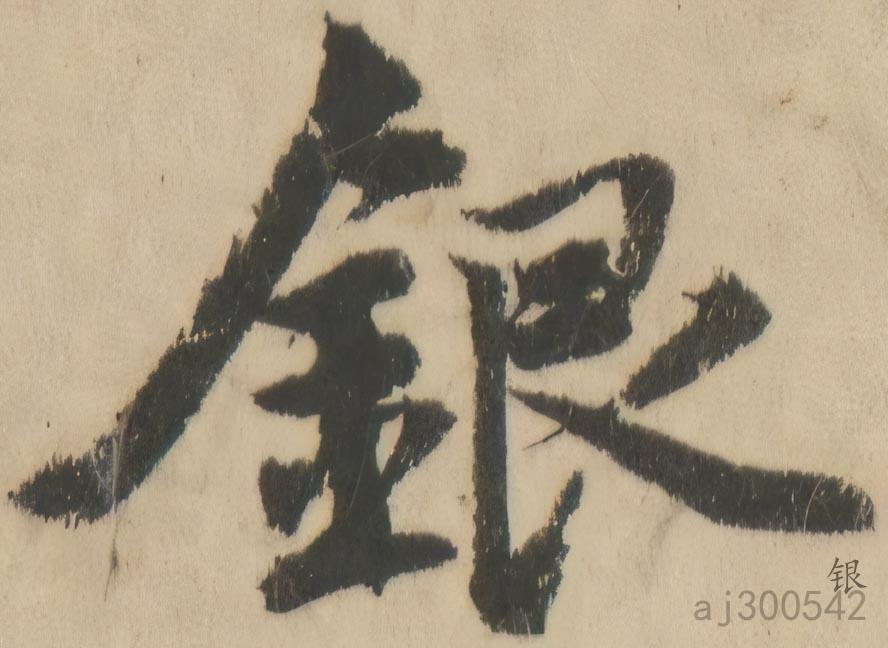 銀
银
aj300542